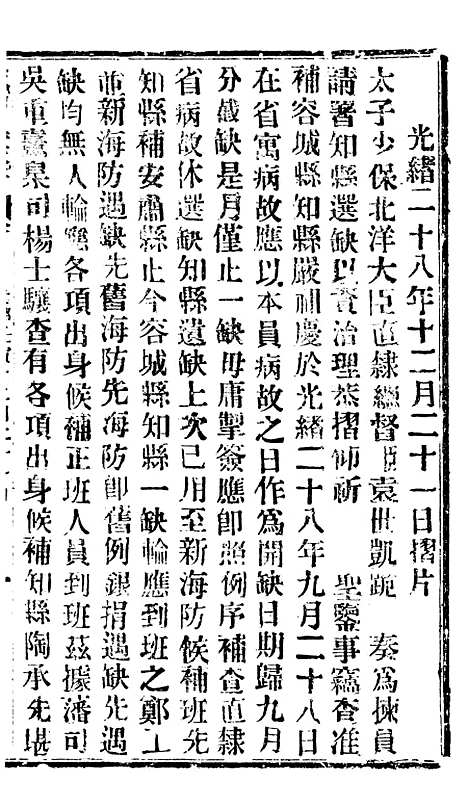 光緒二十八年十二月二十一日摺片
太子少保北洋大臣直隸總督臣袁世凱跪　奏爲揀員
請署知縣選缺以資治理恭摺仰祈　聖鑒事竊查准
補容城縣知縣嚴祠慶於光緒二十八年九月二十八日
在省寓病故應以本員病故之日作爲開缺日期歸九月
分截缺是月僅止一缺毋庸掣簽應即照例序補查直隸
省病故休選缺知縣遺缺上次已用至新海防候補班先
知縣補安肅縣止今容城縣知縣一缺輪應到班之鄭工
並新海防遇缺先舊海防先海防即舊例銀捐遇缺先遇
缺均無人輪應各項出身候補正班人員到班茲據藩司
吳重憙臬司楊士驤查有各項出身候補知縣陶承先堪